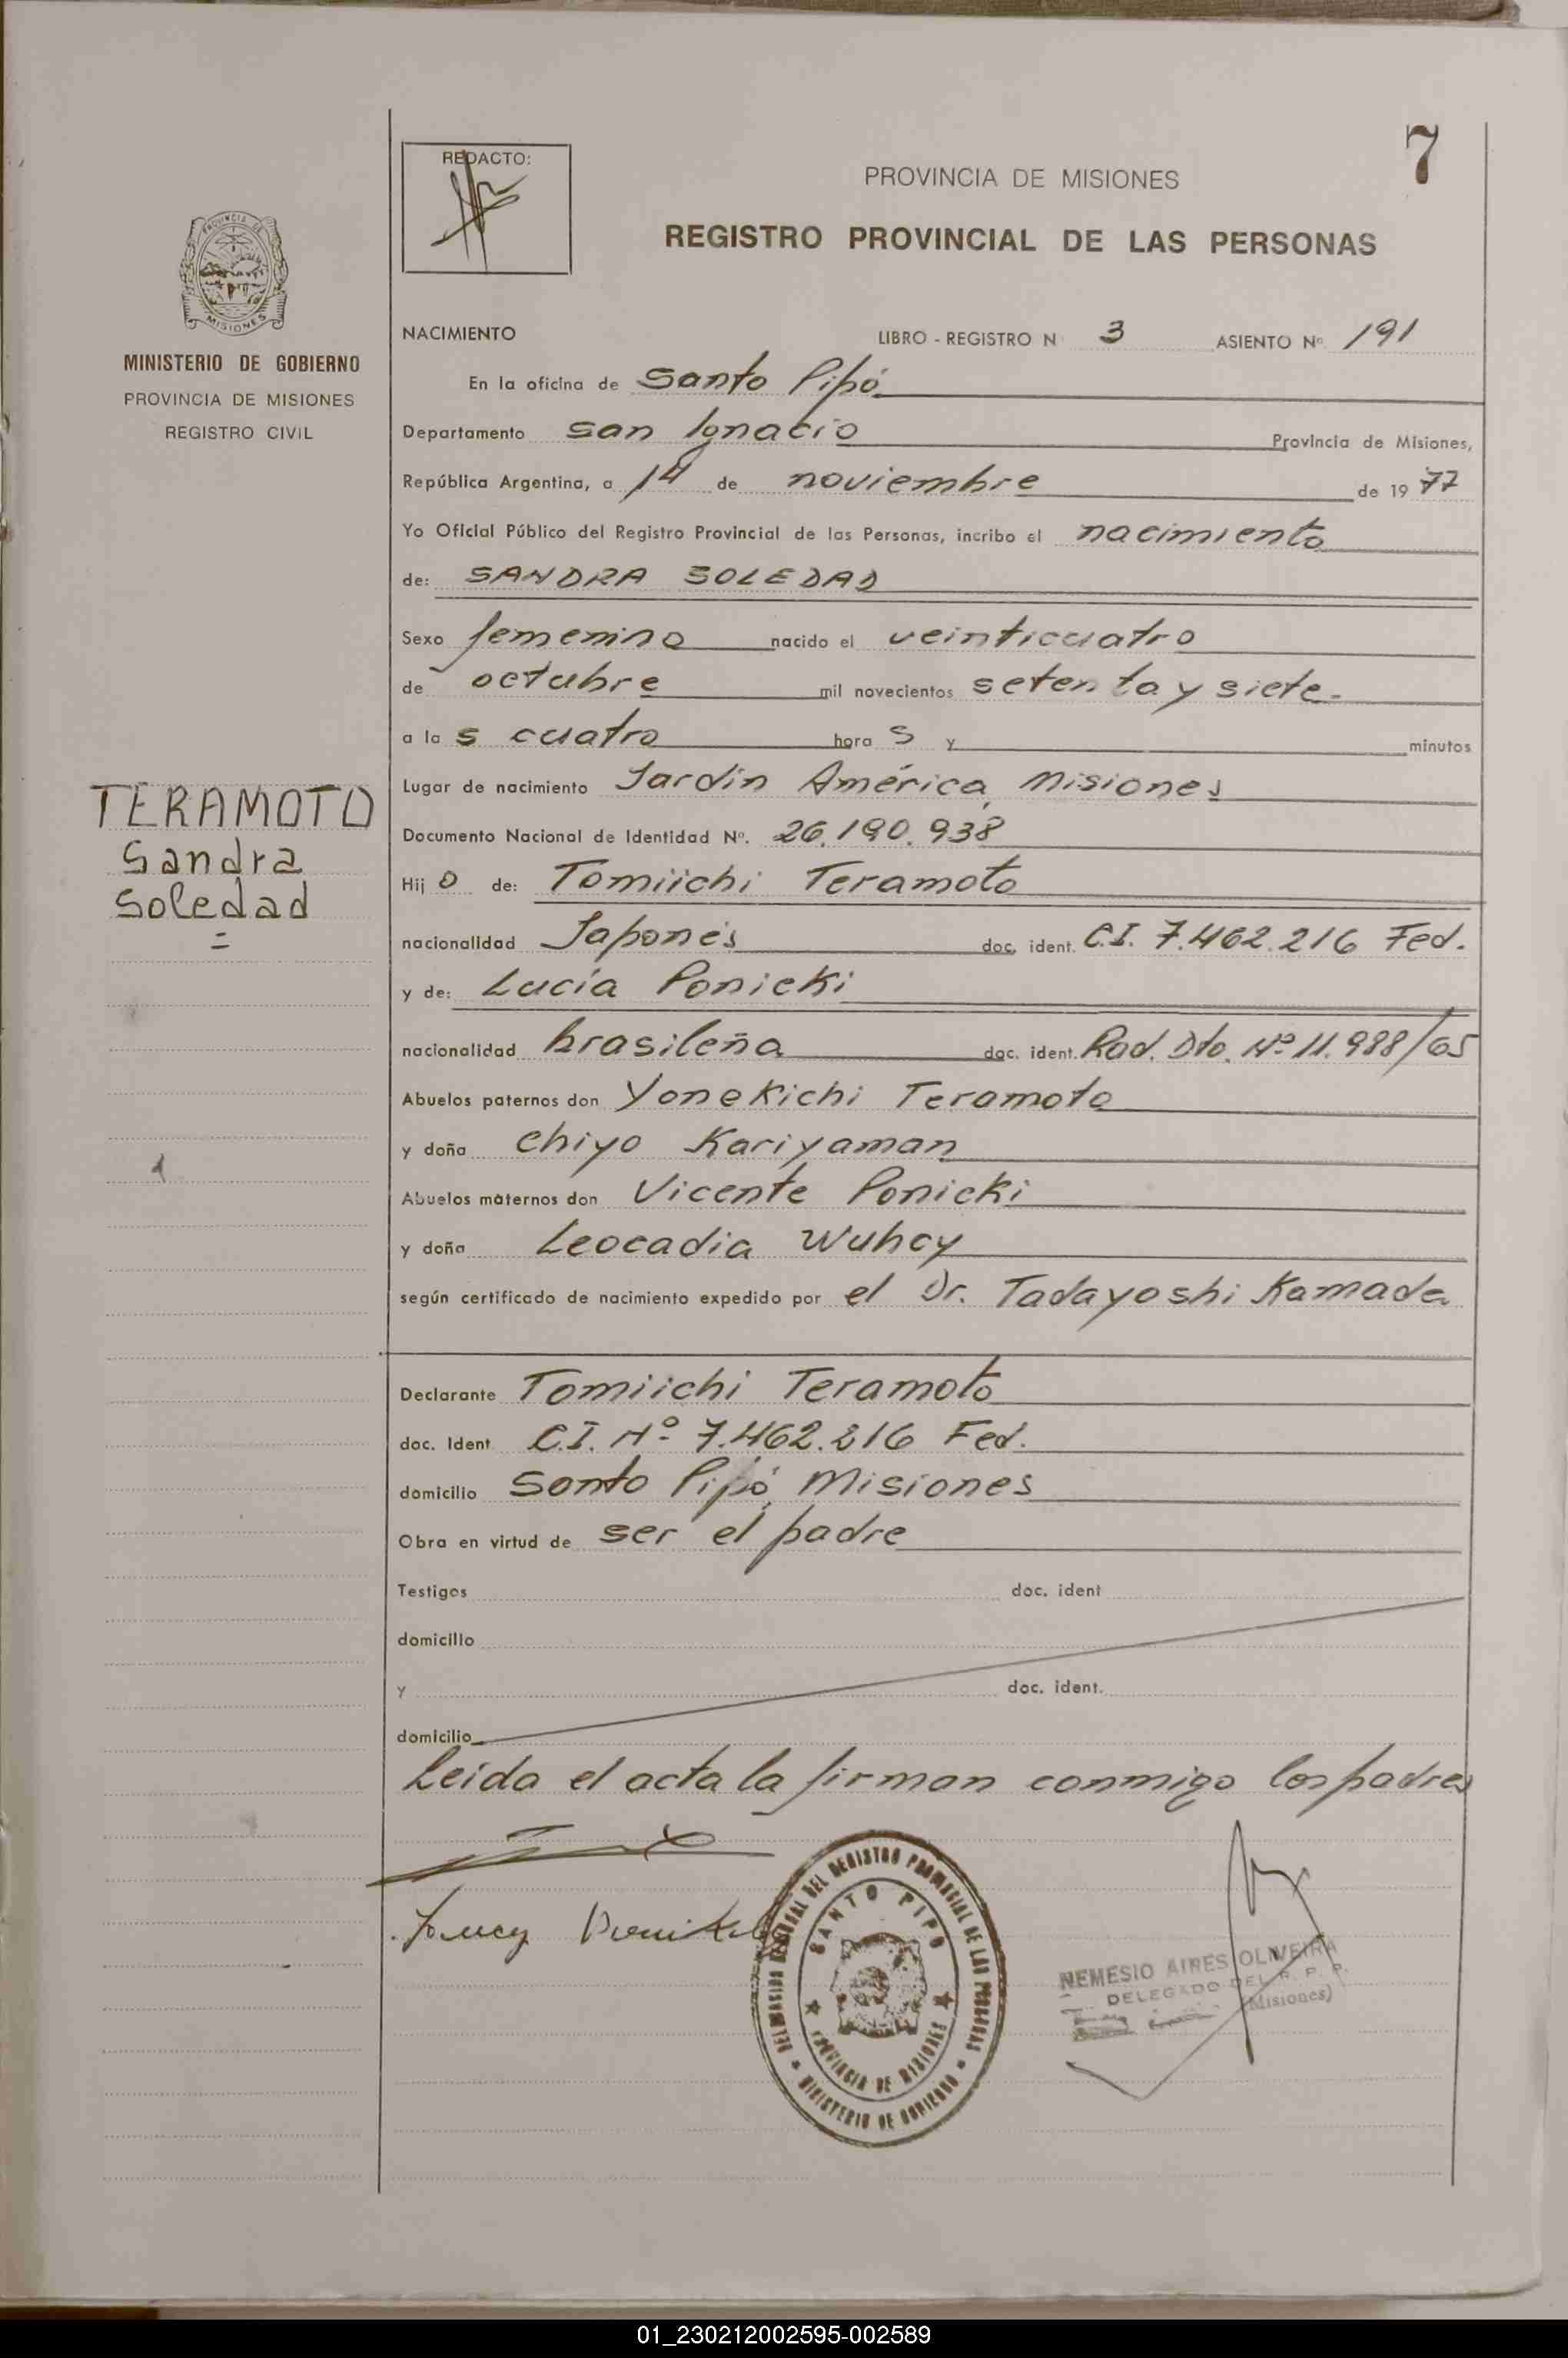 7
REDACTO:
PROVINCIA DE MISIONES
REGISTRO PROVINCIAL DE LAS PERSONAS
PROVINCIA DE
MISIONES
MINISTERIO DE GOBIERNO
PROVINCIA DE MISIONES
REGISTRO CIVIL
NACIMIENTO LIBRO - REGISTRO N 3 ASIENTO Nº 191
En la oficina de Santo Pipó
Departamento San Ignacio Provincia de Misiones,
República Argentina, a 14 de noviembre de 1977
Yo Oficial Público del Registro Provincial de las Personas, incribo el nacimiento
de: SANDRA SOLEDAD
Sexo femenino nacido el veinticuatro
de octubre mil novecientos setenta y siete-
a las cuatro horas y minutos
Lugar de nacimiento Jardín América, Misiones
Documento Nacional de Identidad Nº. 26.190.938
TERAMOTO
Sandra
Soledad
=
Hijo de: Tomiichi Teramoto
nacionalidad Japonés doc. ident. C.I. 7.462.216 Fed.
y de: Lucía Ponicki
nacionalidad brasileña doc. ident. Rad. Dto. Nº 11.988/65
Abuelos paternos don Yonekichi Teramoto
y doña Chiyo Kariyaman
Abuelos maternos don Vicente Ponicki
y doña Leocadia Wuhcy
según certificado de nacimiento expedido por el Dr. Tadayoshi Kamada
Declarante Tomiichi Teramoto
doc. Ident C.I. Nº 7.462.216 Fed.
domicilio Santo Pipó, Misiones
Obra en virtud de ser el padre
Testigos doc. ident
domicilio
y doc. ident.
domicilio
Leída el acta la firman conmigo los padres
DELEGACION SECCIONAL DEL REGISTRO PROVINCIAL DE LAS PERSONAS
SANTO PIPO
PROVINCIA DE MISIONES
MINISTERIO DE GOBIERNO
NEMESIO AIRES OLIVEIRA
DELEGADO DEL R. P. P.
(Misiones)
01_230212002595-002589